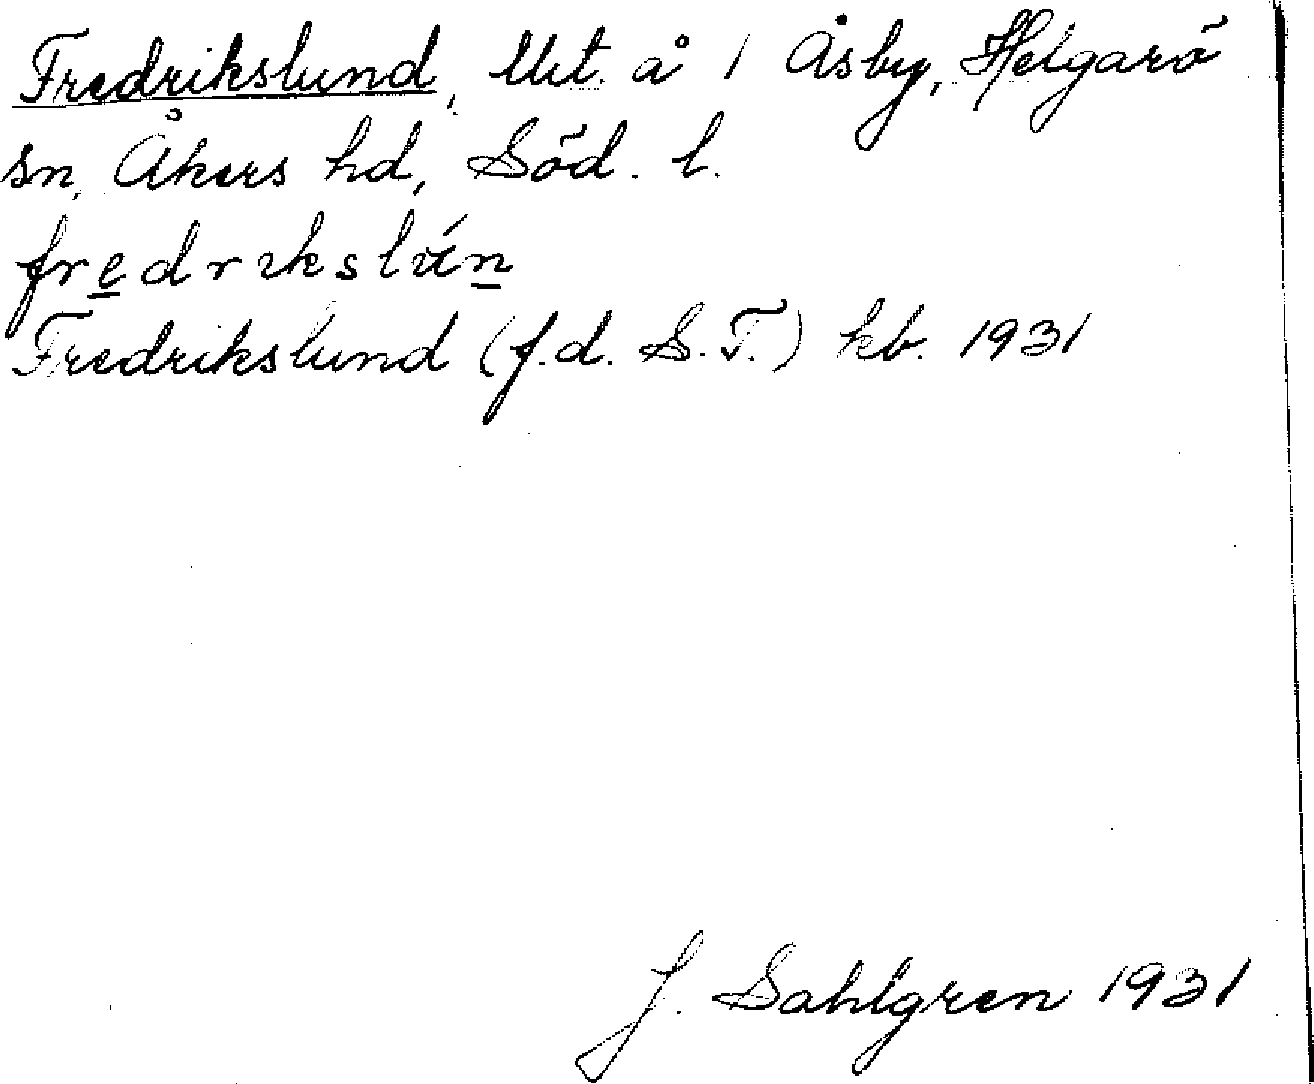 Fredrikslund, Ut. å 1 Åsby, Helgarö
sn, Åkers hd, Söd. l.
fredrikslún
Fredrikslund (f.d. S.T.) kb. 1931
J. Sahlgren 1931